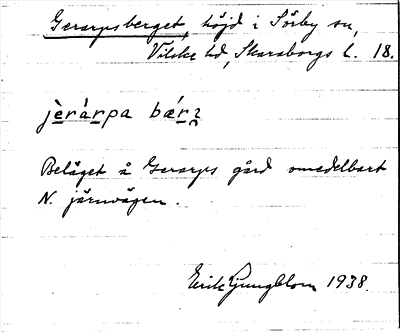 Gerarpsberget, höjd i Sörby sn,
Vilske hd, Skaraborgs l. 18.
jèrárpa bǽrɜ
Beläget å Gerarps gård omedelbart
N. järnvägen.
Erik Ljungblom 1938.